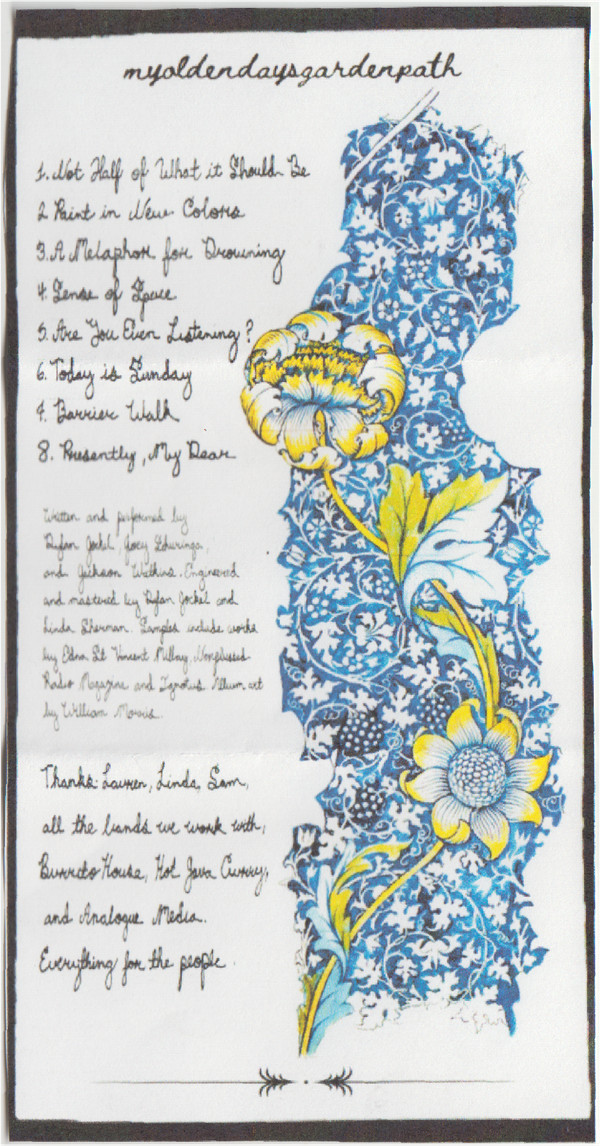 myoldendaysgardenpath
1. Not Half of What it Should Be
2 Paint in New Colors
3. A Metaphor for Drowning
4. Sense of Space
5. Are You Even Listening?
6. Today is Sunday
7. Barrier Walk
8. Presently, My Dear
Written and performed by
Dylan Jockel, Joey
and Jackson Watkins. Engineered
and mastered by Dylan Jockel and
Linda Sherman. Samples include works
by Edna St Vincent Millay, Nonplussed
Radio Magazine and Album art
by William Morris.
Thanks Lauren, Linda, Sam,
all the bands we work with,
Burrito House, Hot Java Curry,
and Analogue Media.
Everything for the people.